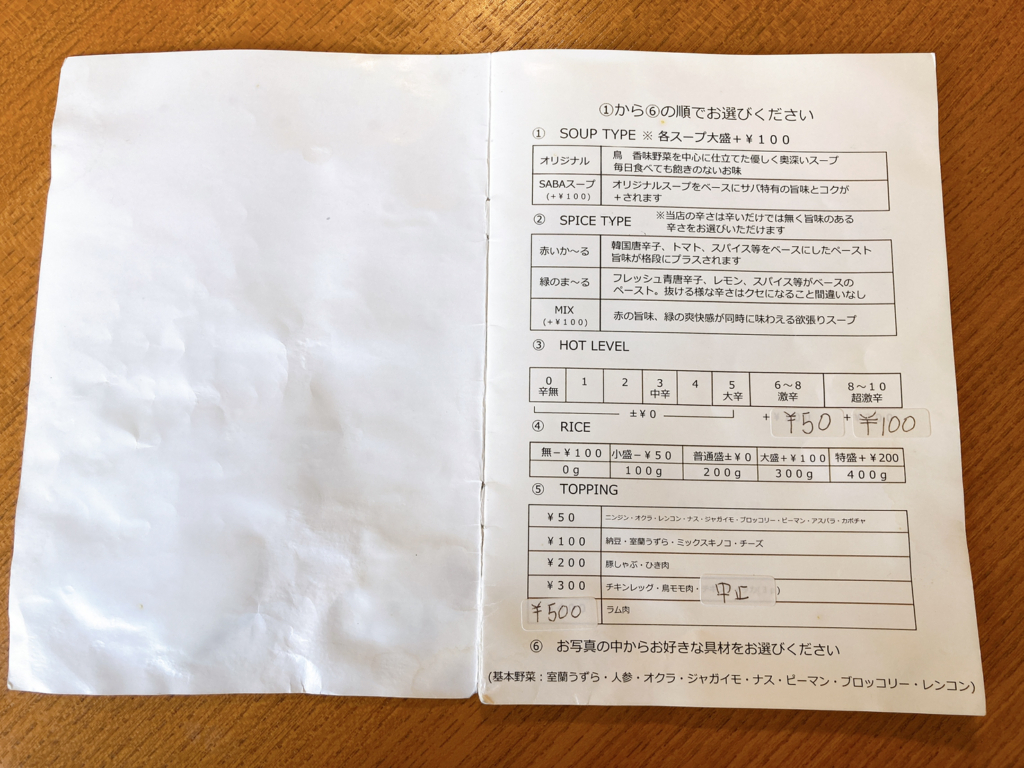 ①から⑥の順でお選びください
① SOUP TYPE ※ 各スープ大盛＋￥１００
オリジナル 鳥　香味野菜を中心に仕立てた優しく奥深いスープ
毎日食べても飽きのないお味
SABAスープ オリジナルスープをベースにサバ特有の旨味とコクが
(＋￥１００) ＋されます
② SPICE TYPE ※当店の辛さは辛いだけでは無く旨味のある
辛さをお選びいただけます
赤いか〜る 韓国唐辛子、トマト、スパイス等をベースにしたペースト
旨味が格段にプラスされます
緑のま〜る フレッシュ青唐辛子、レモン、スパイス等がベースの
ペースト。抜ける様な辛さはクセになること間違いなし
MIX
(＋￥１００) 赤の旨味、緑の爽快感が同時に味わえる欲張りスープ
③ HOT LEVEL
0 1 2 3 4 5 ６〜８ ８〜１０
辛無 中辛 大辛 激辛 超激辛
±￥０ + ¥50 + ¥100
④ RICE
無－￥１００ 小盛－￥５０ 普通盛±￥０ 大盛＋￥１００ 特盛＋￥200
０ｇ １００ｇ ２００ｇ ３００ｇ ４００ｇ
⑤ TOPPING
￥５０ ニンジン・オクラ・レンコン・ナス・ジャガイモ・ブロッコリー・ピーマン・アスパラ・カボチャ
￥１００ 納豆・室蘭うずら・ミックスキノコ・チーズ
￥２００ 豚しゃぶ・ひき肉
￥３００ チキンレッグ・鳥モモ肉・ 中止 )
¥500 ラム肉
⑥ お写真の中からお好きな具材をお選びください
(基本野菜：室蘭うずら・人参・オクラ・ジャガイモ・ナス・ピーマン・ブロッコリー・レンコン)